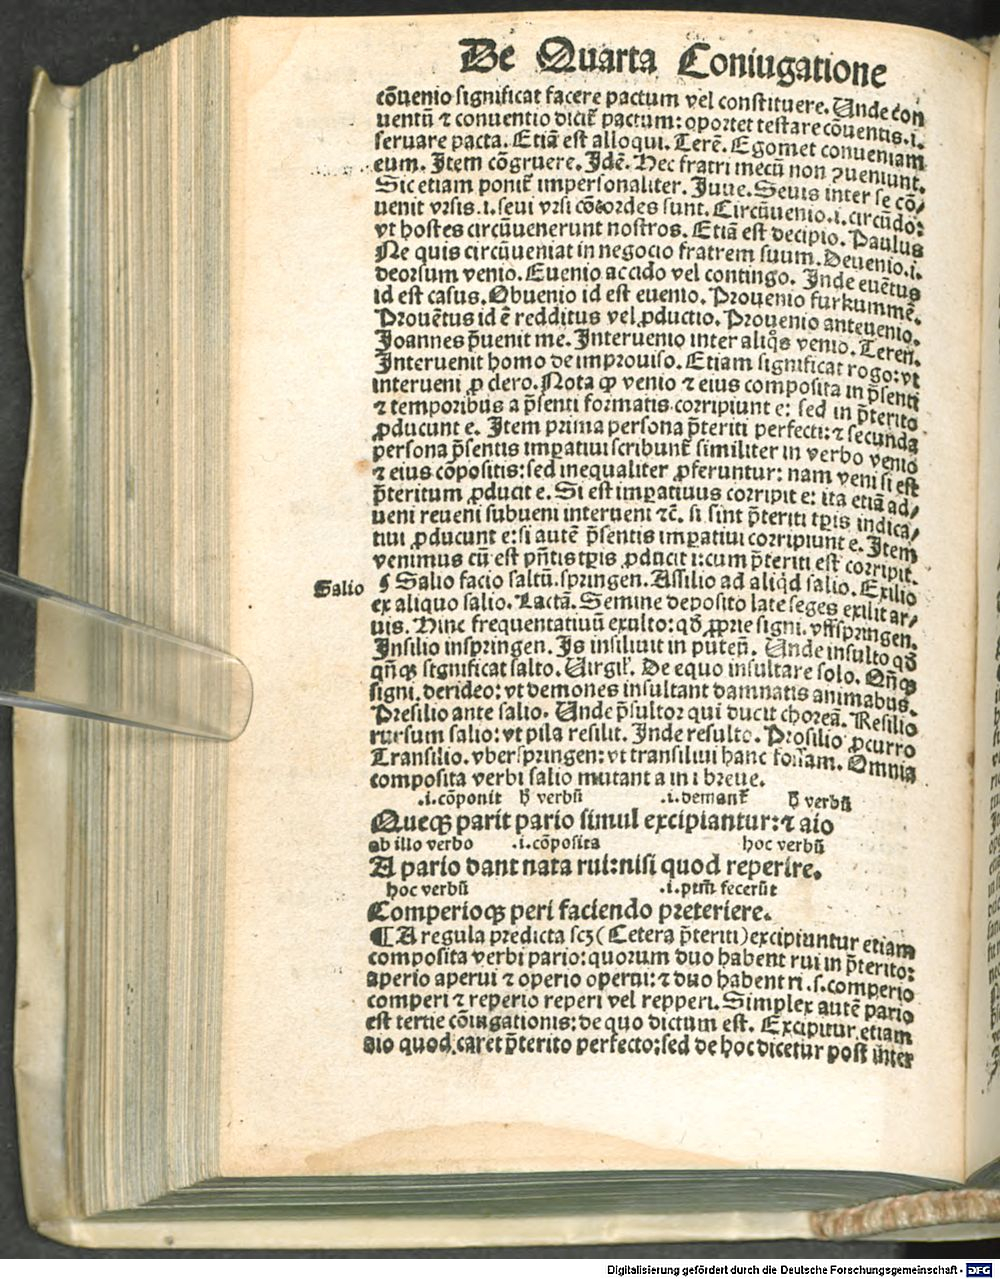 De Quarta Coniugatione
cōuenio significat facere pactum vel constituere. Unde con
uentū ⁊ conuentio dicit᷑ pactum: oportet testare cōuentis .i.
seruare pacta. Etiā est alloqui. Terē. Egomet conueniam
eum. Item cōgruere. Idē. Hec fratri mecū non ꝯueniunt.
Sic etiam ponit᷑ impersonaliter. Juue. Seuis inter se cō/
uenit vrsis .i. seui vrsi cōcordes sunt. Circūuenio .i. circūdo:
vt hostes circūuenerunt nostros. Etiā est decipio. Paulus
Ne quis circūueniat in negocio fratrem suum. Deuenio .i.
deorsum venio. Euenio accido vel contingo. Inde euētus
id est casus. Obuenio id est euenio. Prouenio furkummē.
Prouētus id ē redditus vel ꝓductio. Prouenio anteuenio.
Joannes p̄uenit me. Interuenio inter aliq̊s venio. Teren̄.
Interuenit homo de improuiso. Etiam significat rogo: vt
interueni ꝓ dero. Nota ꝙ venio ⁊ eius composita in p̄senti
⁊ temporibus a p̄senti formatis corripiunt e: sed in p̄terito
ꝓducunt e. Item prima persona p̄teriti perfecti: ⁊ secunda
persona p̄sentis imꝑatiui scribunt᷑ similiter in verbo venio
⁊ eius cōpositis: sed inequaliter ꝓferuntur: nam veni si est
p̄teritum ꝓducit e. Si est imꝑatiuus corripit e: ita etiā ad/
ueni reueni subueni interueni ⁊c̄. si sint p̄teriti tꝑis indica/
tiui ꝓducunt e: si autē p̄sentis imꝑatiui corripiunt e. Item
venimus cū est pn̄tis tꝑis ꝓducit i: cum p̄teriti est corripit.
Salio
¶ Salio facio saltū. springen. Assilio ad aliq̇d salio. Exilio
ex aliquo salio. Lactā. Semine deposito late seges exilit ar/
uis. Hinc frequentatiuū exulto: qđ ꝓprie signi. vffspringen.
Insilio inspringen. Is insiliuit in puteū. Unde insulto qđ
qn̄qꝫ significat salto. Uirgiľ. De equo insultare solo. Qn̄qꝫ
signi. derideo: vt demones insultant damnatis animabus.
Presilio ante salio. Unde p̄sultor qui ducit choreā. Resilio
rursum salio: vt pila resilit. Inde resulto. Prosilio ꝓcurro
Transilio. vberspringen: vt transiliui hanc fossam. Omnia
composita verbi salio mutant a in i breue.
.i. cōponit ħ verbū .i. demant᷑ ħ verbū
Queqꝫ parit pario simul excipiantur: ⁊ aio
ab illo verbo .i. cōposita hoc verbū
A pario dant nata rui: nisi quod reperire.
hoc verbū .i. ptm̄ fecerūt
Comperioqꝫ peri faciendo preteriere.
¶ A regula predicta scꝫ (Cetera p̄teriti) excipiuntur etiam
composita verbi pario: quorum duo habent rui in p̄terito:
aperio aperui ⁊ operio operui: ⁊ duo habent ri .s. comperio
comperi ⁊ reperio reperi vel repperi. Simplex autē pario
est tertie cōiugationis: de quo dictum est. Excipitur etiam
aio quod caret p̄terito perfecto: sed de hoc dicetur post inter
Digitalisierung gefördert durch die Deutsche Forschungsgemeinschaft - DFG